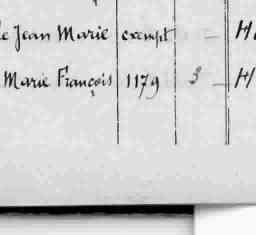 Jean Marie exempt - H
Marie François 1179 3 - H